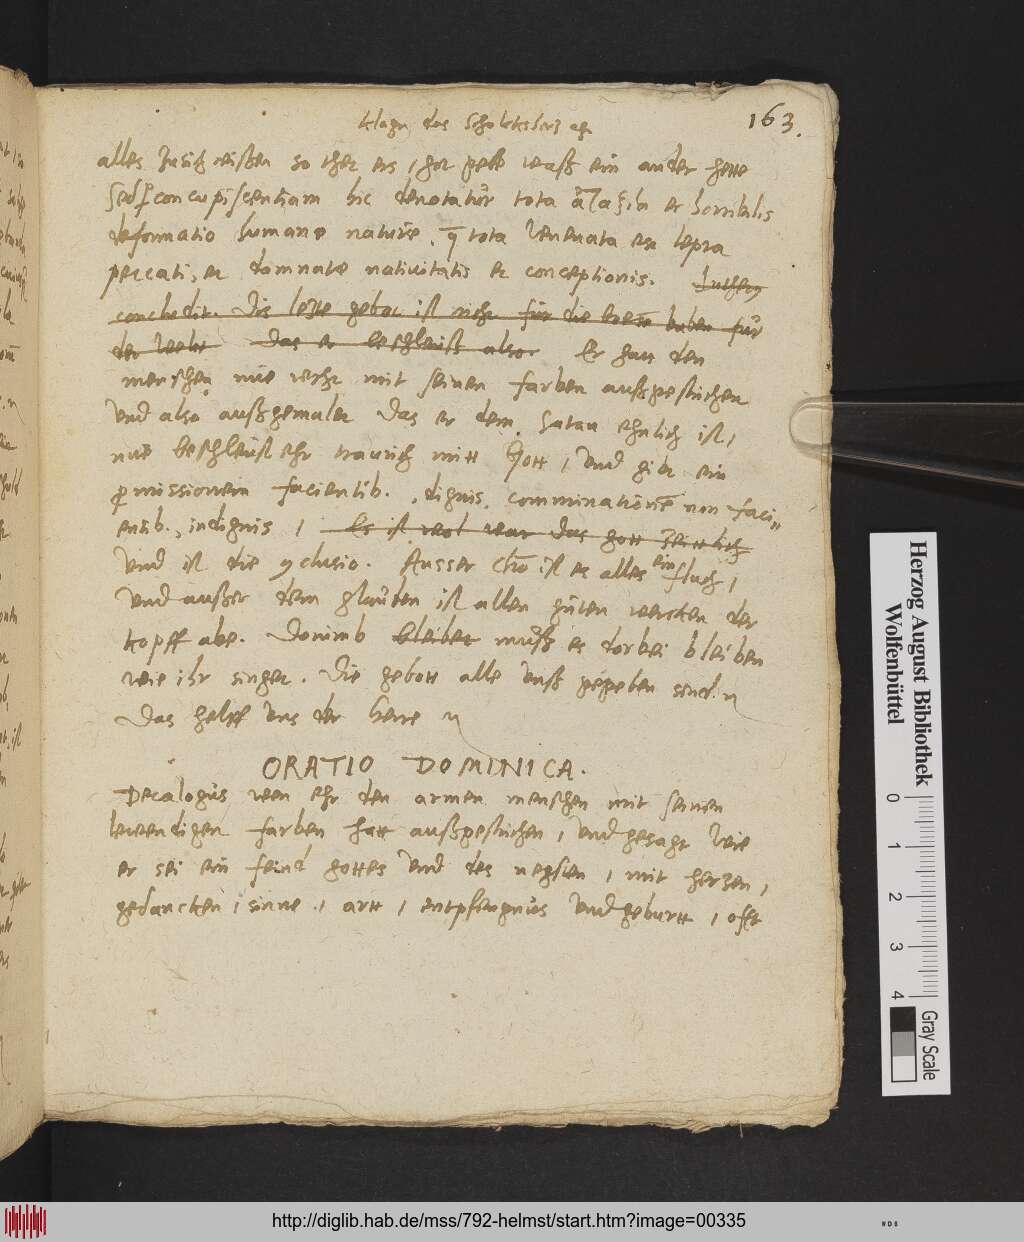 163.
klagen das Schalcksherz an
alles zu sich reissen so ther ers, Got geb was ein ander hette
Sed concupiscentiam hic denotatur tota ἀταξία et horribilis
deformatio humane nature, q tota venenata est lepra
peccati, et damnate nativitatis et conceptionis. Luthery
concludit. Dis letzte gebot ist nicht für die bösen buben für
der welt Das er beschleust also. Er hatt den
menschen nue recht mit seinen farben außgestrichen
Und also außgemalet Das er dem Satan ehnlich ist,
nue beschleust ehr traurich mitt Gott, Und gibt ein
pmissionem facientib. dignis, comminationē non faci
entib. indignis, Es ist wol war das gott
Und ist die 9clusio. Ausser Chro ist es alles ein fluch,
Und außer dem glauben ist allen guten wercken der
kopff abe. Dorumb bleibet muß es dorbei bleiben
wie ihr singet. Die gebott alle unß gegeben sind.
Das helff uns der herre
ORATIO DOMINICA.
Decalogus wen ehr den armen menschen mit seinen
lewendigen farben hatt außgestrichen, Und gesagt wie
er sei ein feind gottes Und des negsten, mit herzen,
gedancken, sinne, artt, entpfengnus Und geburtt, offt
Herzog August Bibliothek
Wolfenbüttel
0
1
2
3
4
Gray Scale
http://diglib.hab.de/mss/792-helmst/start.htm?image=00335